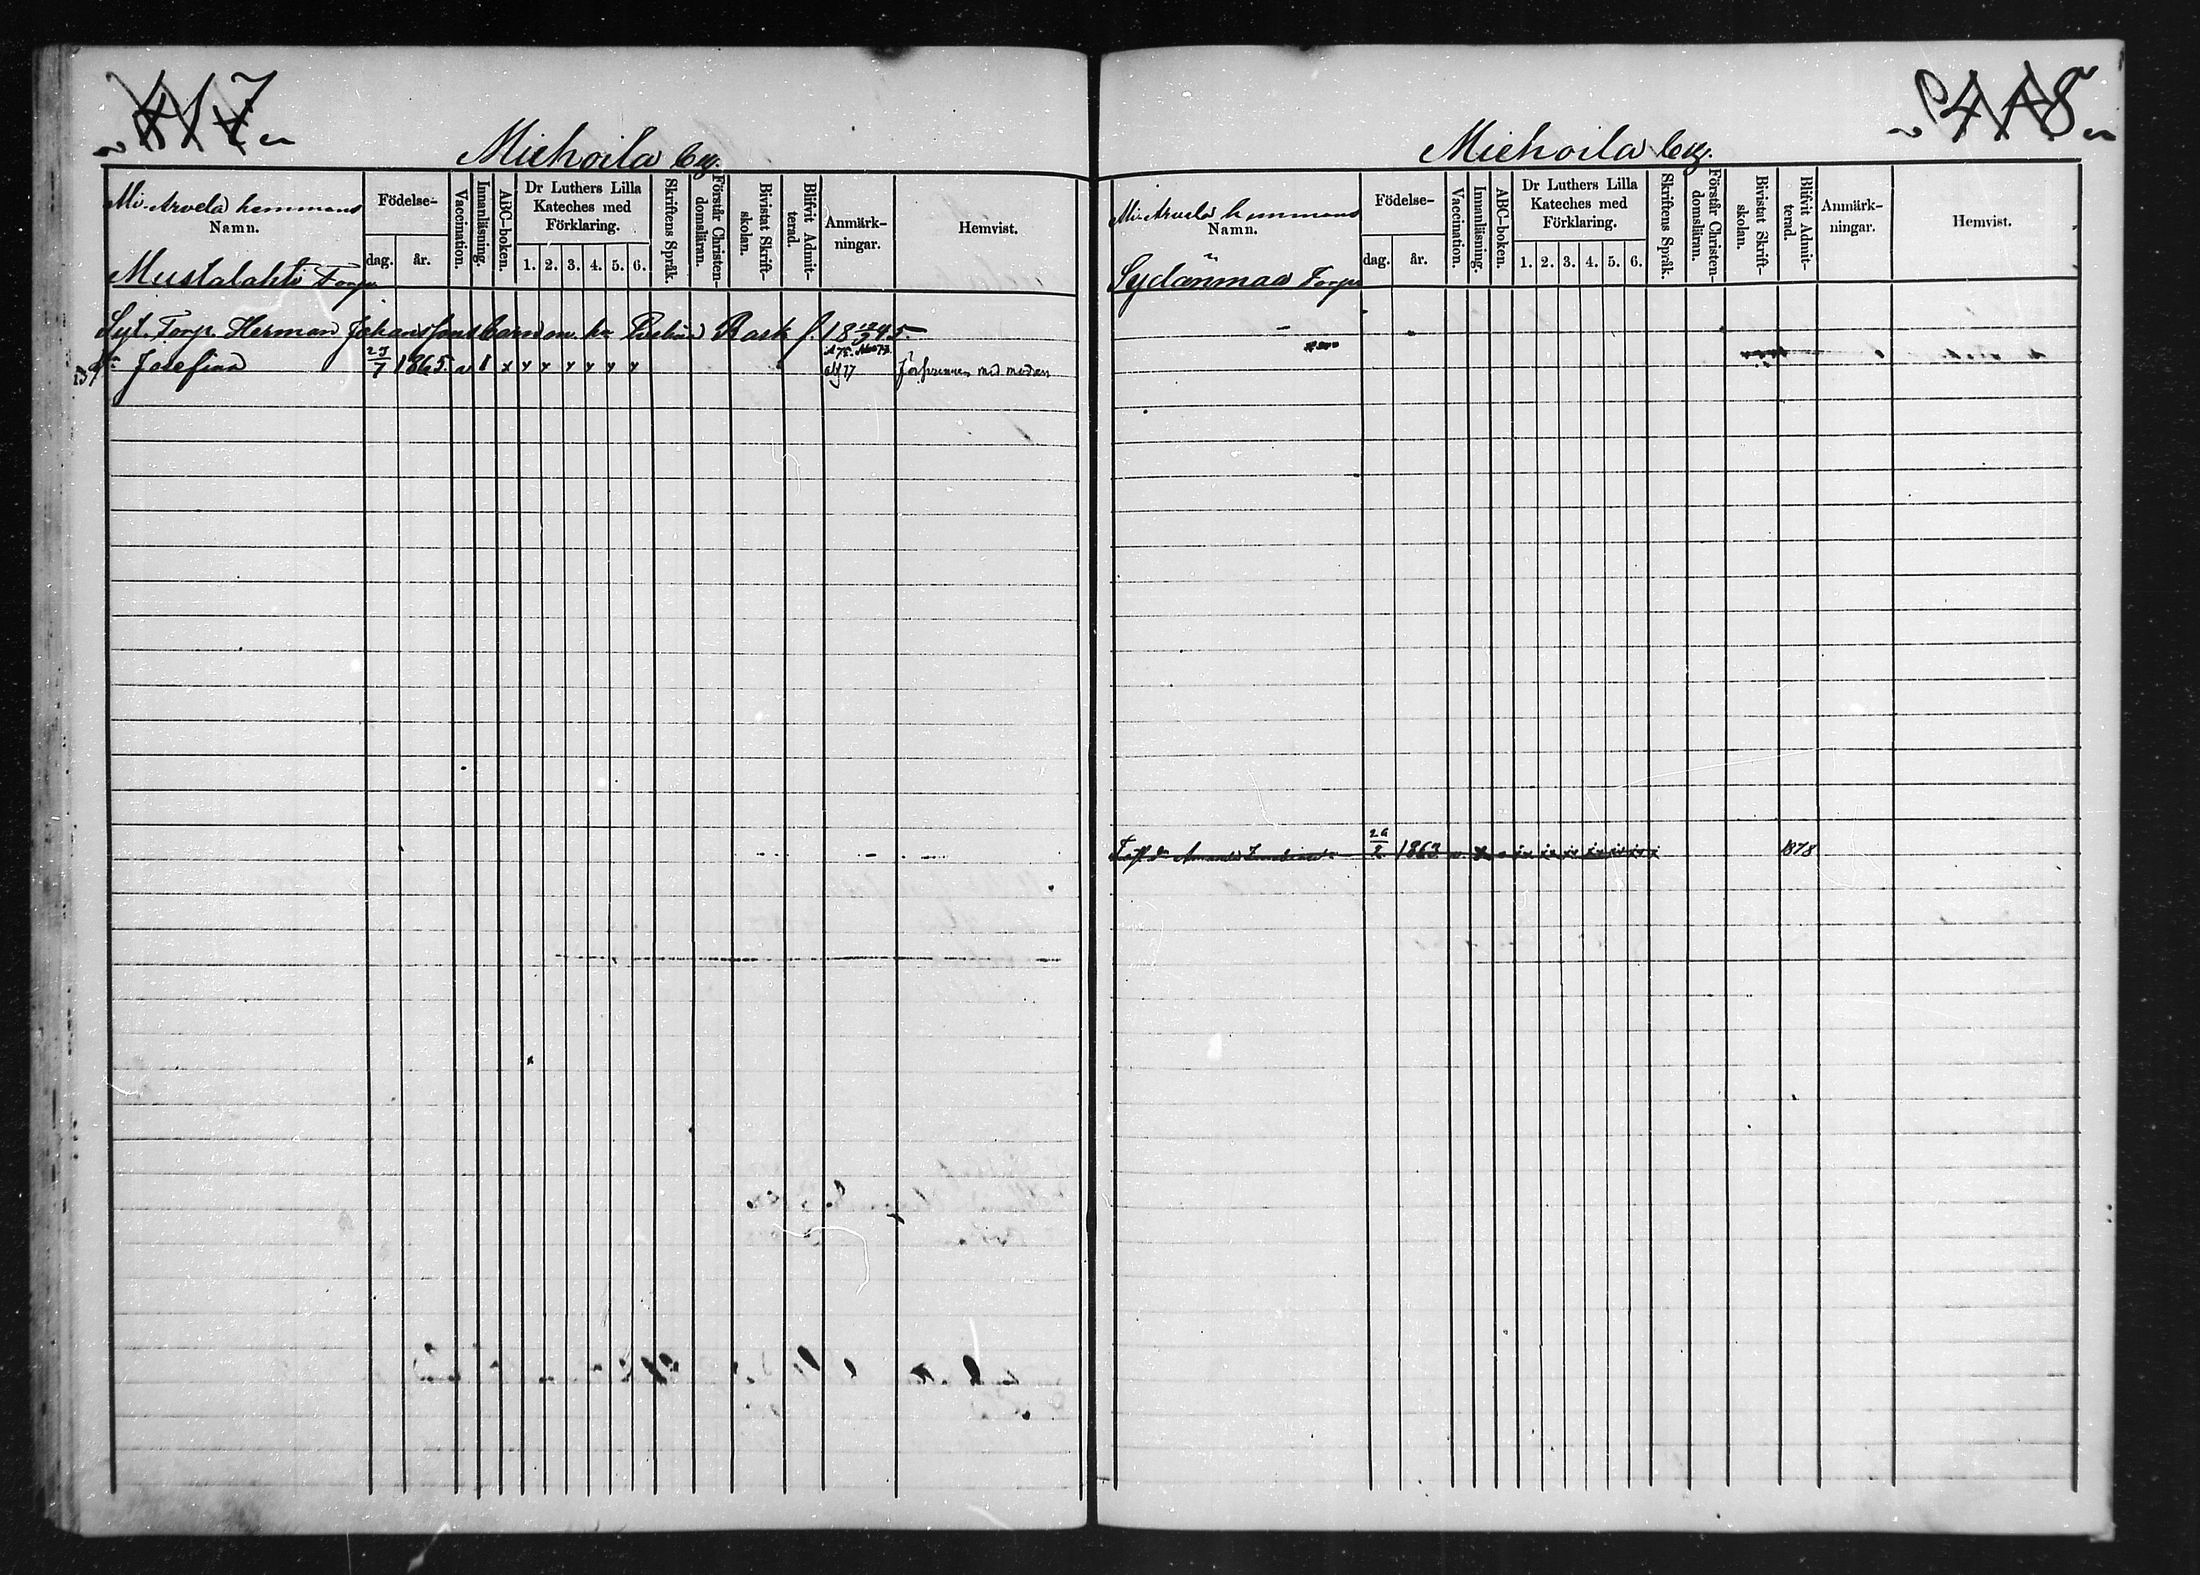 417
Miehoila by.
Mi. Arvela hemmans
Namn.
Mustalahti Torp
Födelse-
dag.
år.
Vaccination.
Innanläsning.
ABC-boken.
Dr Luthers Lilla
Kateches med
Förklaring.
1. 2. 3. 4. 5. 6.
Skriftens Språk.
Förstår Christen-
domsläran.
Bivistat Skrift-
skolan.
Blifvit Admit-
terad.
Anmärk-
ningar.
Hemvist.
Torp. Herman Johanssons barn m. Rask f. 18 12/3 45.
Josefina 25/7 1865 v x x x x x x x afg 77 med modern
418
Miehoila by.
Mi. Arvela hemmans
Namn.
Sydänmaa Torp
Födelse-
dag.
år.
Vaccination.
Innanläsning.
ABC-boken.
Dr Luthers Lilla
Kateches med
Förklaring.
1. 2. 3. 4. 5. 6.
Skriftens Språk.
Förstår Christen-
domsläran.
Bivistat Skrift-
skolan.
Blifvit Admit-
terad.
Anmärk-
ningar.
Hemvist.
Amanda 26/2 1863 1878